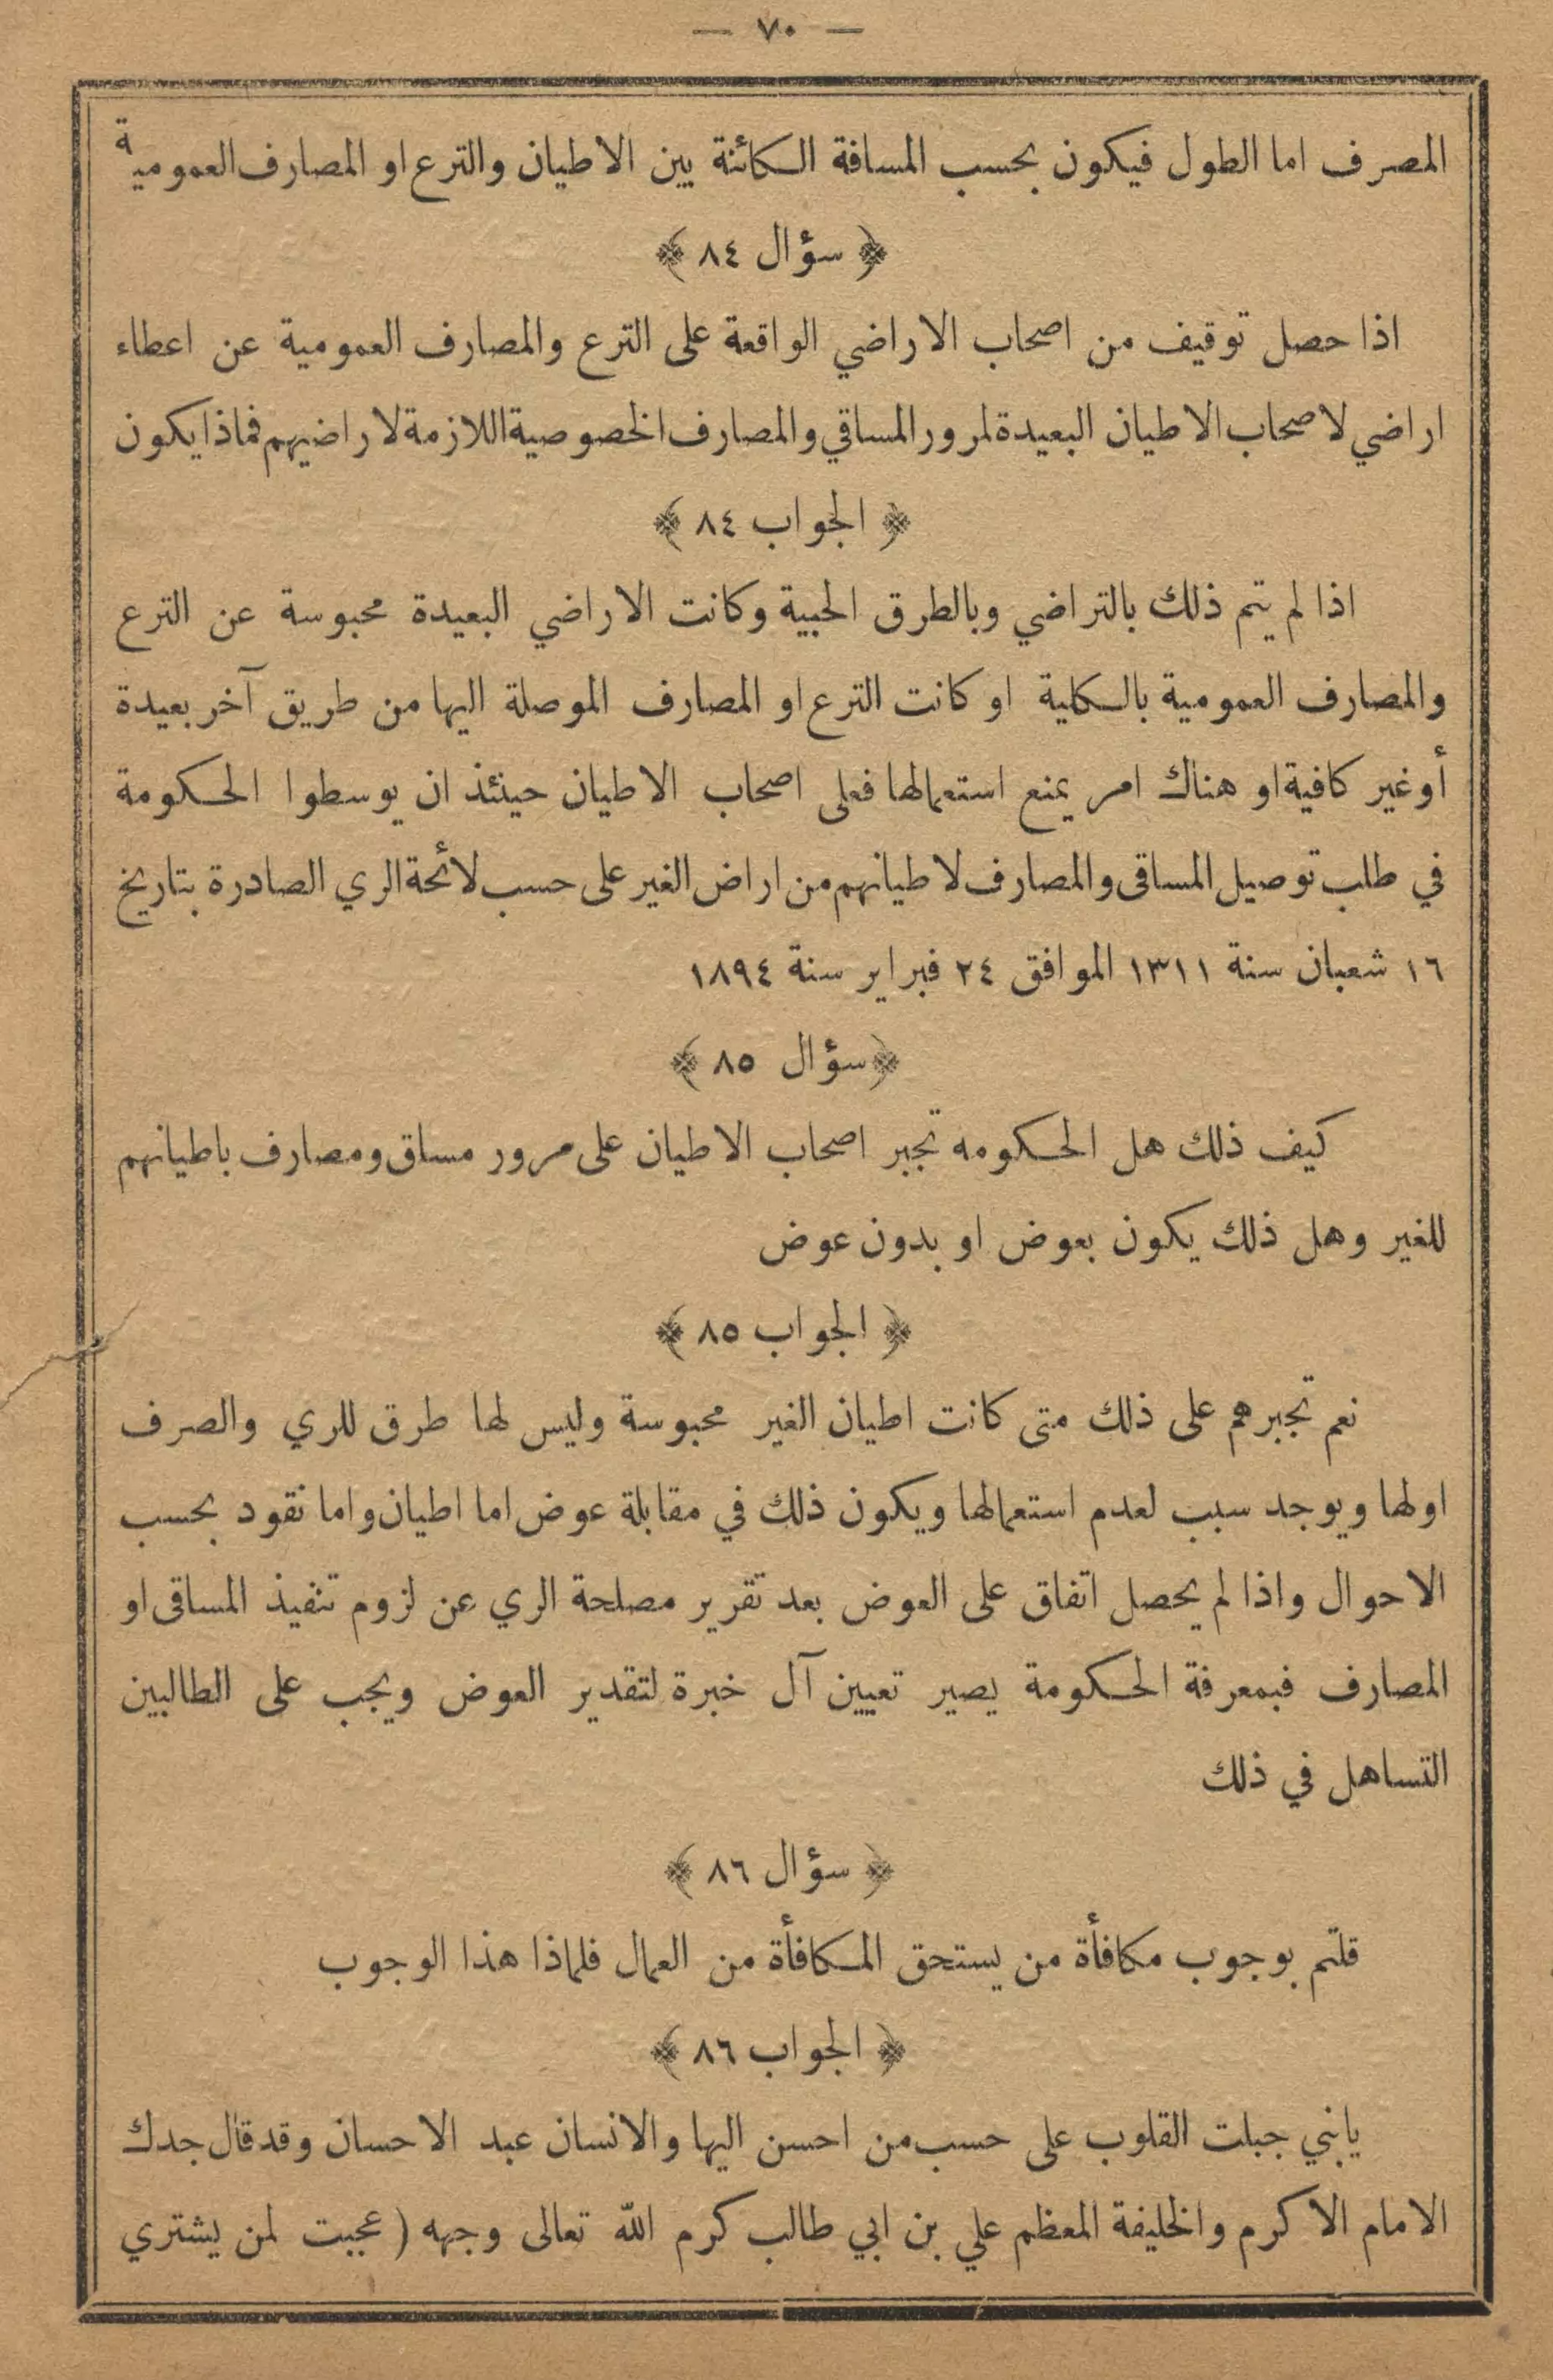 — ٧٠ —
المصرف اما الطول فيكون بحسب المسافة الكائنة بين الاطيان والترع او المصارف العمومية
﴿ سؤال ٨٤ ﴾
اذا حصل توقيف من اصحاب الاراضي الواقعة على الترع والمصارف العمومية عن اعطاء
اراضي لاصحاب الاطيان البعيدة لمرور المساقي والمصارف الخصوصية اللازمة لاراضيهم فماذا يكون
﴿ الجواب ٨٤ ﴾
اذا لم يتم ذلك بالتراضي وبالطرق الحبية وكانت الاراضي البعيدة محبوسة عن الترع
والمصارف العمومية بالكلية او كانت الترع او المصارف الموصلة اليها من طريق آخر بعيدة
أو غير كافية او هناك امر يمنع استعمالها فعلى اصحاب الاطيان حينئذ ان يوسطوا الحكومة
في طلب توصيل المساقى والمصارف لاطيانهم من اراض الغير على حسب لائحة الري الصادرة بتاريخ
١٦ شعبان سنة ١٣١١ الموافق ٢٤ فبراير سنة ١٨٩٤
﴿ سؤال ٨٥ ﴾
كيف ذلك هل الحكومه تجبر اصحاب الاطيان على مرور مساق ومصارف باطيانهم
للغير وهل ذلك يكون بعوض او بدون عوض
﴿ الجواب ٨٥ ﴾
نعم تجبرهم على ذلك متى كانت اطيان الغير محبوسة وليس لها طرق للري والصرف
اولها ويوجد سبب لعدم استعمالها ويكون ذلك في مقابلة عوض اما اطيان واما نقود بحسب
الاحوال واذا لم يحصل اتفاق على العوض بعد تقرير مصلحة الري عن لزوم تنفيذ المساقى او
المصارف فبمعرفة الحكومة يصير تعيين آل خبرة لتقدير العوض ويجب على الطالبين
التساهل في ذلك
﴿ سؤال ٨٦ ﴾
قلتم بوجوب مكافأة من يستحق المكافأة من العمال فلماذا هذا الوجوب
﴿ الجواب ٨٦ ﴾
يابني جبلت القلوب على حسب من احسن اليها والانسان عبد الاحسان وقد قال جدك
الامام الاكرم والخليفة المعظم علي بن ابي طالب كرم الله تعالى وجهه ( عجبت لمن يشتري